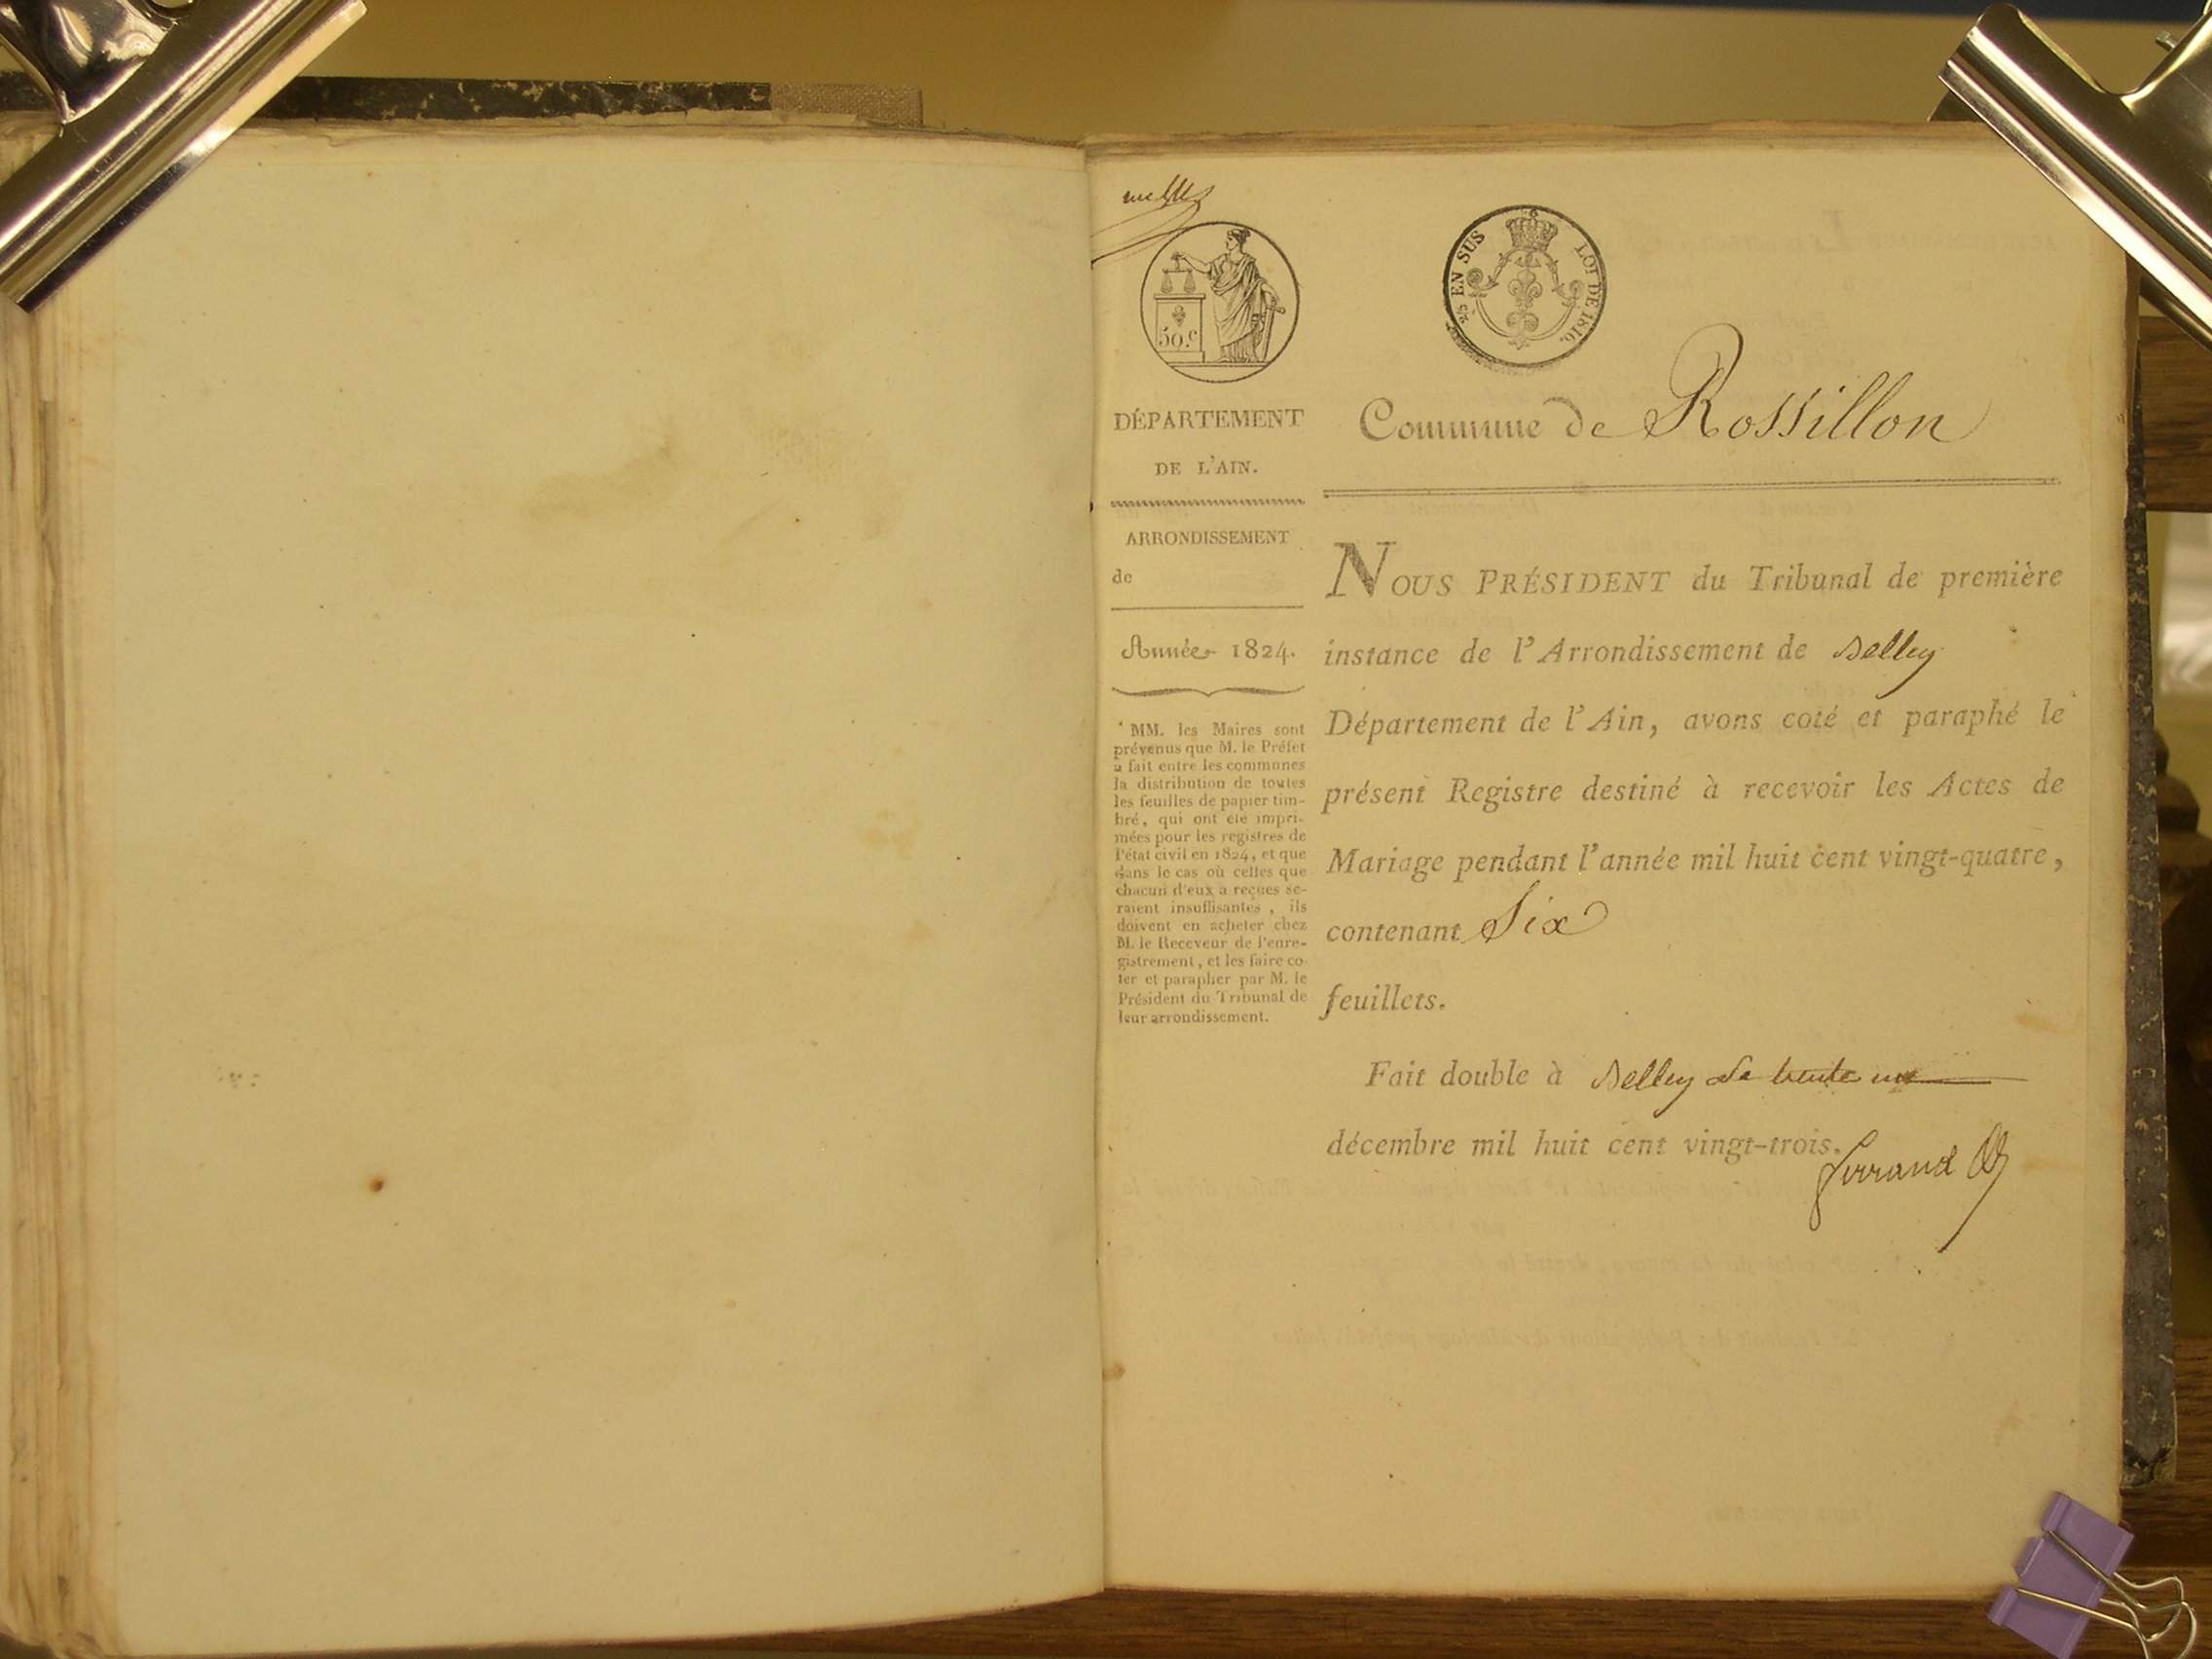 50.c
2/5 EN SUS LOI DE 1816.
DÉPARTEMENT
DE L'AIN.
ARRONDISSEMENT
de
Année 1824.
MM. les Maires sont
prévenus que M. le Préfet
a fait entre les communes
la distribution de toutes
les feuilles de papier tim-
bré, qui ont été impri-
mées pour les registres de
l'état civil en 1824, et que
dans le cas où celles que
chacun d'eux a reçues se-
raient insuffisantes, ils
doivent en acheter chez
M. le Receveur de l'enre-
gistrement, et les faire co-
ter et parapher par M. le
Président du Tribunal de
leur arrondissement.
Commune de Rossillon
NOUS PRÉSIDENT du Tribunal de première
instance de l'Arrondissement de Belley
Département de l'Ain, avons coté et paraphé le
présent Registre destiné à recevoir les Actes de
Mariage pendant l'année mil huit cent vingt-quatre,
contenant Six
feuillets.
Fait double à Belley le trente un
décembre mil huit cent vingt-trois.